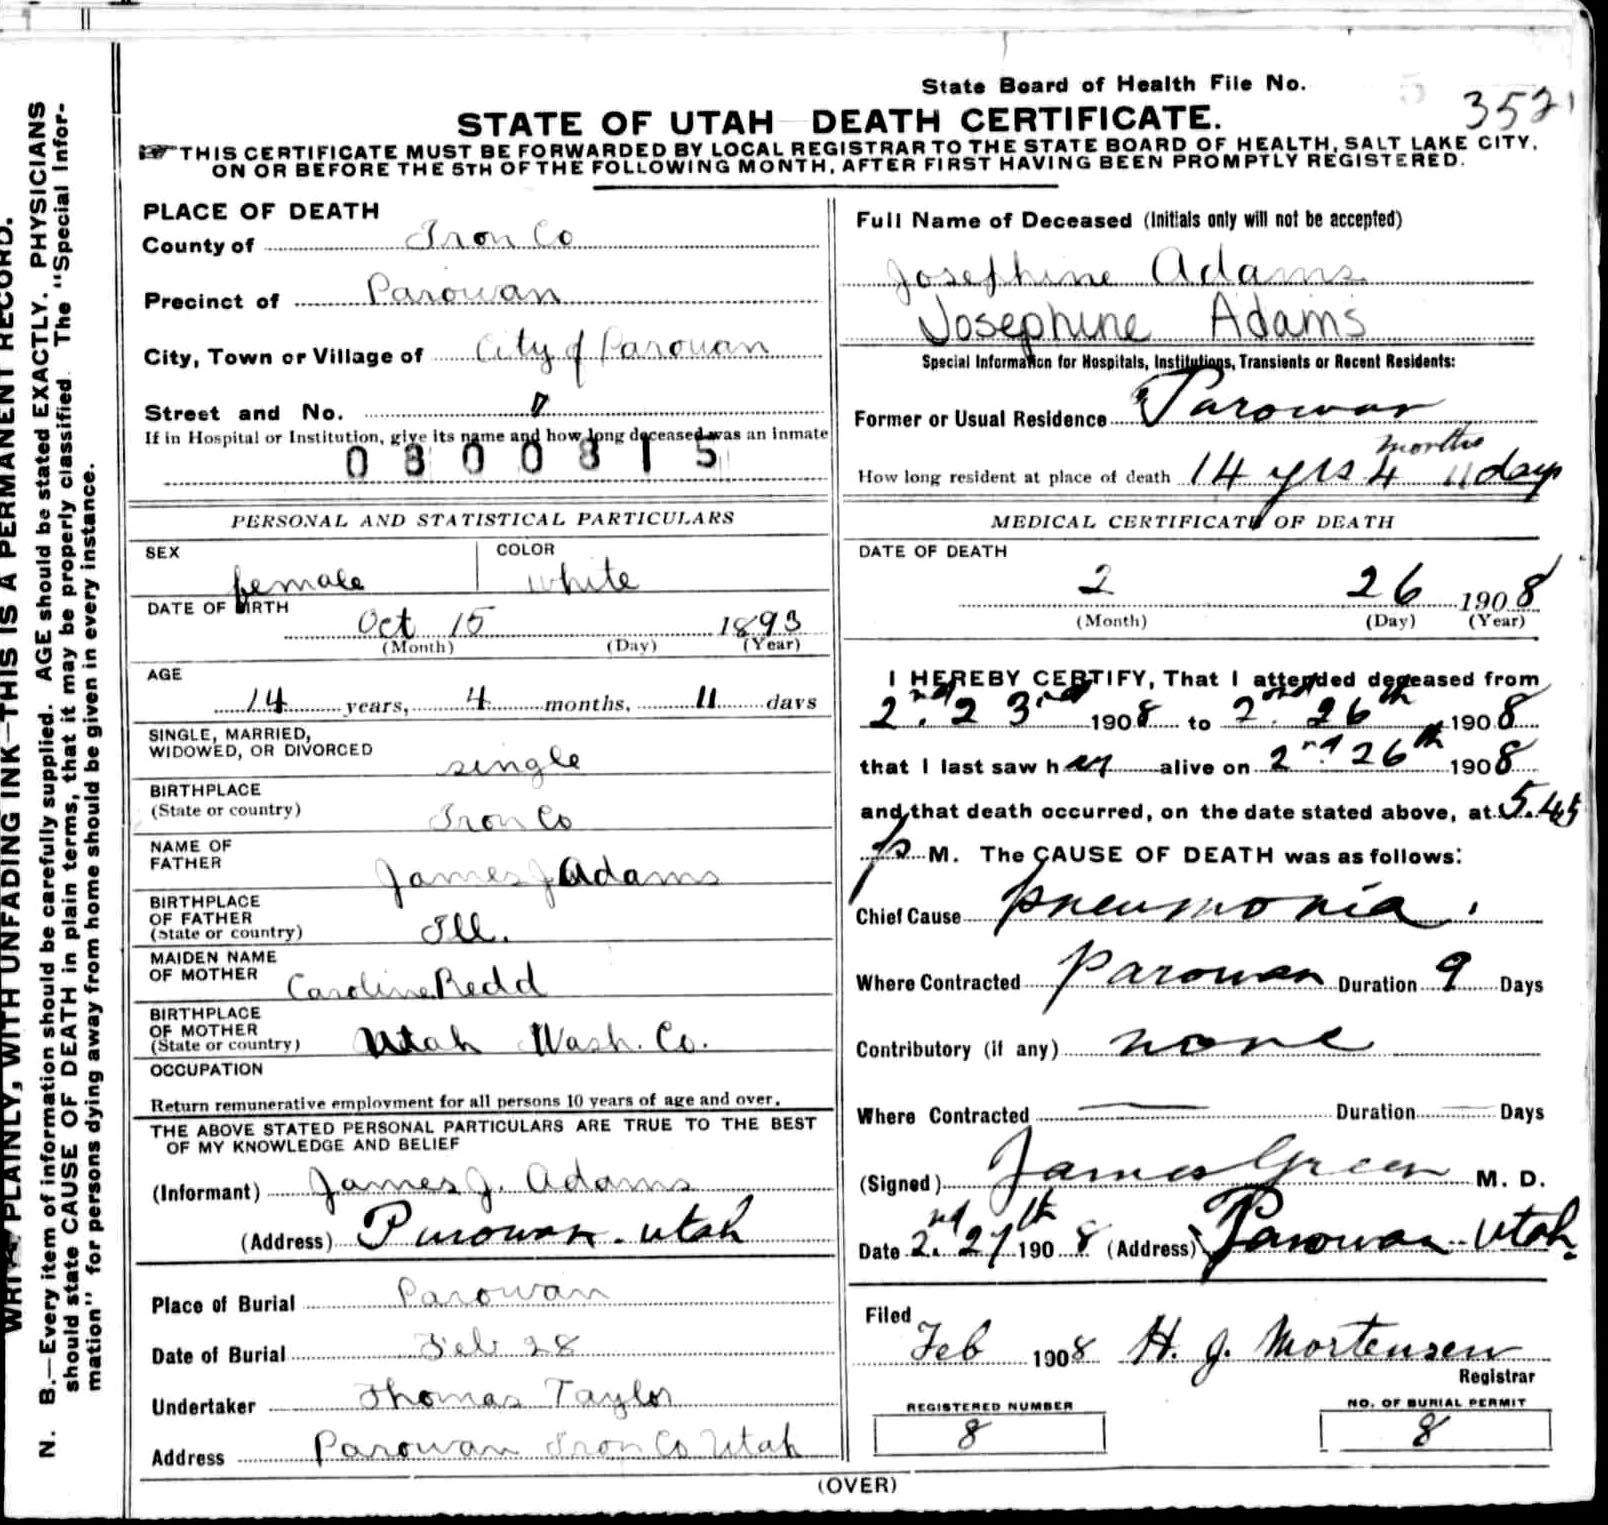 State Board of Health File No. 3521
STATE OF UTAH DEATH CERTIFICATE.
THIS CERTIFICATE MUST BE FORWARDED BY LOCAL REGISTRAR TO THE STATE BOARD OF HEALTH, SALT LAKE CITY,
ON OR BEFORE THE 5TH OF THE FOLLOWING MONTH, AFTER FIRST HAVING BEEN PROMPTLY REGISTERED.
WRITE PLAINLY, WITH UNFADING INK—THIS IS A PERMANENT RECORD.
N. B.—Every item of information should be carefully supplied. AGE should be stated EXACTLY. PHYSICIANS
should state CAUSE OF DEATH in plain terms, that it may be properly classified. The "Special Infor-
mation" for persons dying away from home should be given in every instance.
PLACE OF DEATH
County of Iron Co
Precinct of Parowan
City, Town or Village of City of Parowan
Street and No.
If in Hospital or Institution, give its name and how long deceased was an inmate
0300815
PERSONAL AND STATISTICAL PARTICULARS
SEX COLOR
female white
DATE OF BIRTH
Oct 15 1893
(Month) (Day) (Year)
AGE
14 years, 4 months, 11 days
SINGLE, MARRIED,
WIDOWED, OR DIVORCED single
BIRTHPLACE
(State or country) Iron Co
NAME OF
FATHER James J Adams
BIRTHPLACE
OF FATHER
(State or country) Ill.
MAIDEN NAME
OF MOTHER Caroline Redd
BIRTHPLACE
OF MOTHER
(State or country) Utah Wash. Co.
OCCUPATION
Return remunerative employment for all persons 10 years of age and over.
THE ABOVE STATED PERSONAL PARTICULARS ARE TRUE TO THE BEST
OF MY KNOWLEDGE AND BELIEF
(Informant) James J. Adams
(Address) Parowan. Utah
Place of Burial Parowan
Date of Burial Feb 28
Undertaker Thomas Taylor
Address Parowan Iron Co Utah
Full Name of Deceased (Initials only will not be accepted)
Josephine Adams
Josephine Adams
Special Information for Hospitals, Institutions, Transients or Recent Residents:
Former or Usual Residence Parowan
months
How long resident at place of death 14 yrs 4 11 days
MEDICAL CERTIFICATE OF DEATH
DATE OF DEATH
2 26 1908
(Month) (Day) (Year)
I HEREBY CERTIFY, That I attended deceased from
2nd. 23rd 1908 to 2nd. 26th 1908
that I last saw her alive on 2nd. 26th 1908
and that death occurred, on the date stated above, at 5.45
p M. The CAUSE OF DEATH was as follows:
Chief Cause pneumonia.
Where Contracted Parowan Duration 9 Days
Contributory (if any) none
Where Contracted — Duration — Days
(Signed) James Green M. D.
Date 2nd. 27th 1908 (Address) Parowan Utah.
Filed
Feb 1908 H. J. Mortensen
Registrar
REGISTERED NUMBER
8
NO. OF BURIAL PERMIT
8
(OVER)